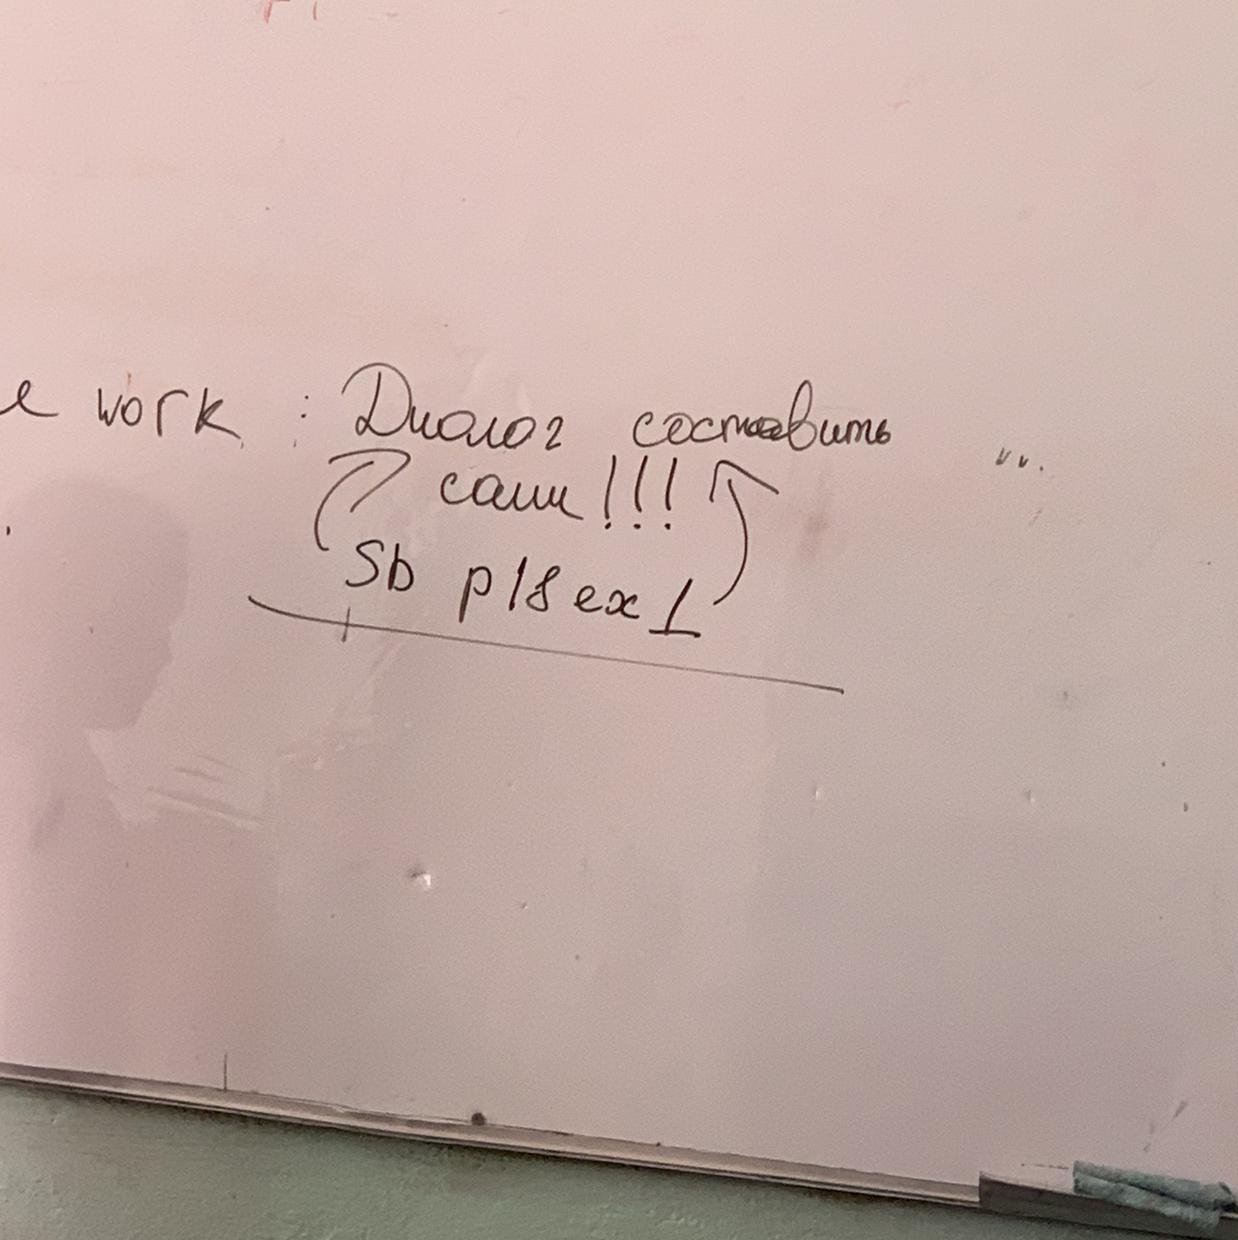 e work : Диалог составить ...
сами!!!
Sb p18 ex 1